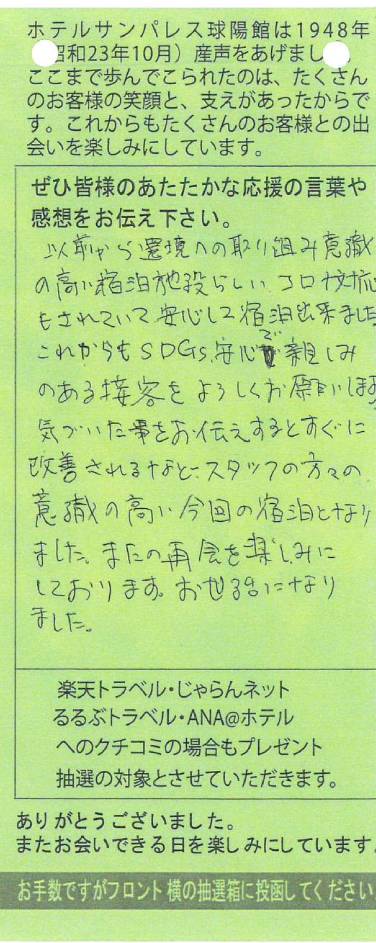 ホテルサンパレス球陽館は1948年
昭和23年10月）産声をあげまし
ここまで歩んでこられたのは、たくさん
のお客様の笑顔と、支えがあったからで
す。これからもたくさんのお客様との出
会いを楽しみにしています。
ぜひ皆様のあたたかな応援の言葉や
感想をお伝え下さい。
以前から環境への取り組み意識
の高い宿泊施設らしい、コロナ対応
もされていて安心して宿泊出来ました
これからもSDGs、安心で親しみ
のある接客をよろしくお願いします
気づいた事をお伝えするとすぐに
改善されるなど、スタッフの方々の
意識の高い今回の宿泊となり
ました。またの再会を楽しみに
しております。お世話になり
ました。
楽天トラベル・じゃらんネット
るるぶトラベル・ANA@ホテル
へのクチコミの場合もプレゼント
抽選の対象とさせていただきます。
ありがとうございました。
またお会いできる日を楽しみにしています。
お手数ですがフロント横の抽選箱に投函してください